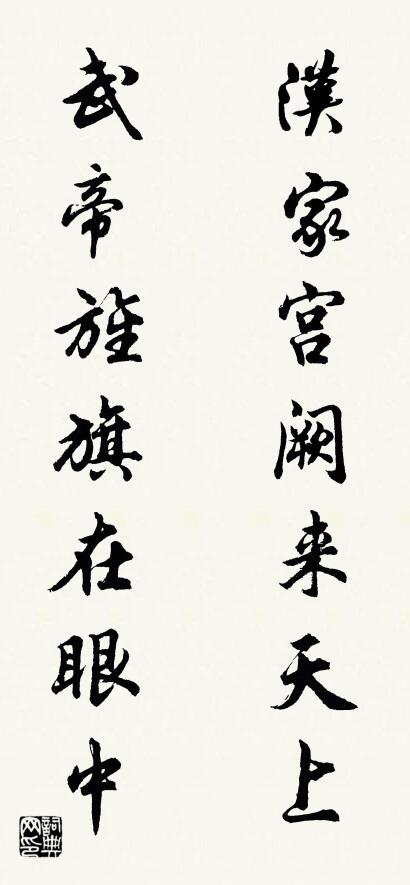 漢家宫阙来天上
武帝旌旗在眼中
詞典网印